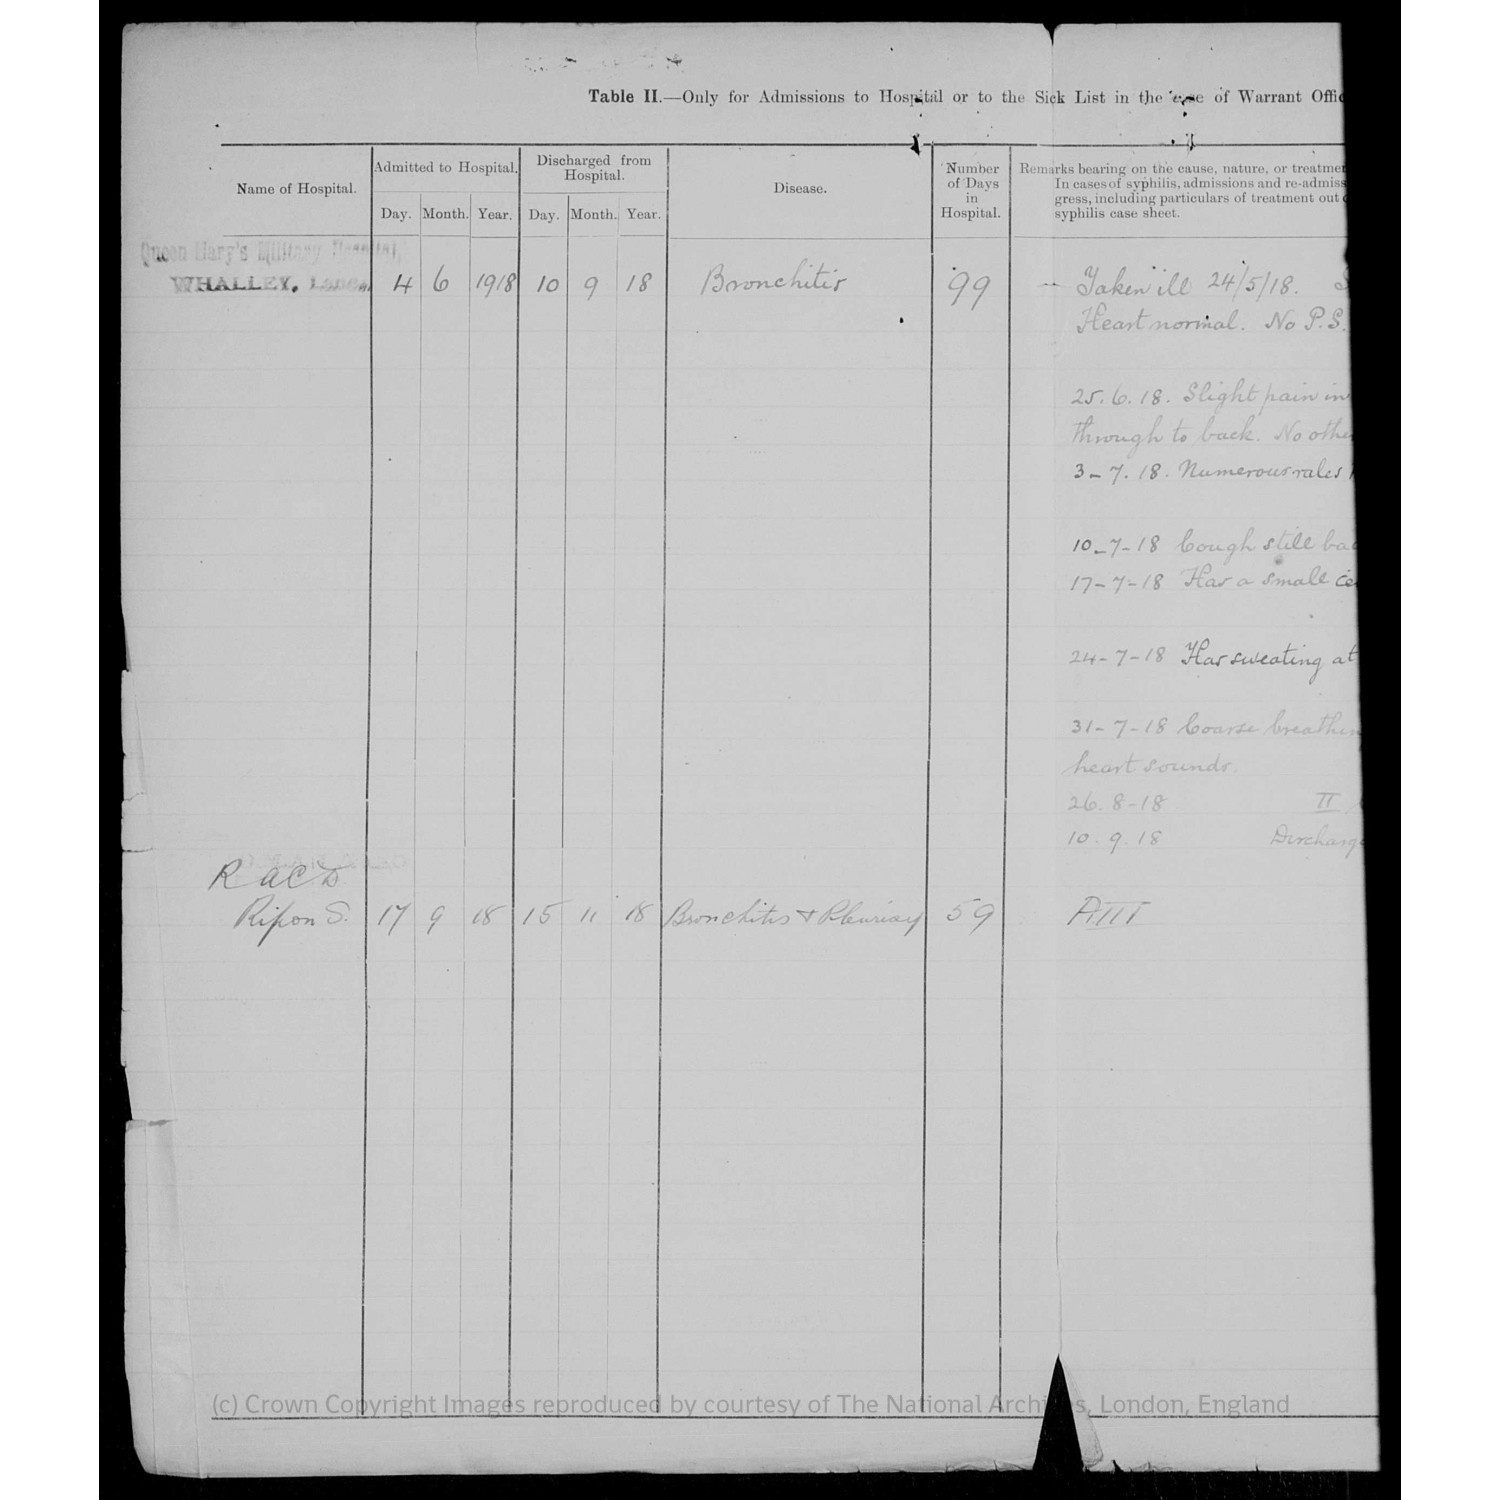 Table II.—Only for Admissions to Hospital or to the Sick List in the case of Warrant Offic
Name of Hospital.
Admitted to Hospital.
Day. Month. Year.
Discharged from
Hospital.
Day. Month. Year.
Disease.
Number
of Days
in
Hospital.
Remarks bearing on the cause, nature, or treatmen
In cases of syphilis, admissions and re-admiss
gress, including particulars of treatment out o
syphilis case sheet.
Queen Mary's Military Hospital,
WHALLEY, Lancs. 4 6 1918 10 9 18 Bronchitis 99 — Taken ill 24/5/18. S
Heart normal. No P.S.
25.6.18. Slight pain in
through to back. No othe
3-7.18. Numerous rales
10-7-18 Cough still bad
17-7-18 Has a small ce
24-7-18 Has sweating at
31-7-18 Coarse breathin
heart sounds.
26.8-18 II
10.9.18 Discharge
R A C D
Ripon S. 17 9 18 15 11 18 Bronchitis & Pleurisy 59
(c) Crown Copyright Images reproduced by courtesy of The National Archives, London, England